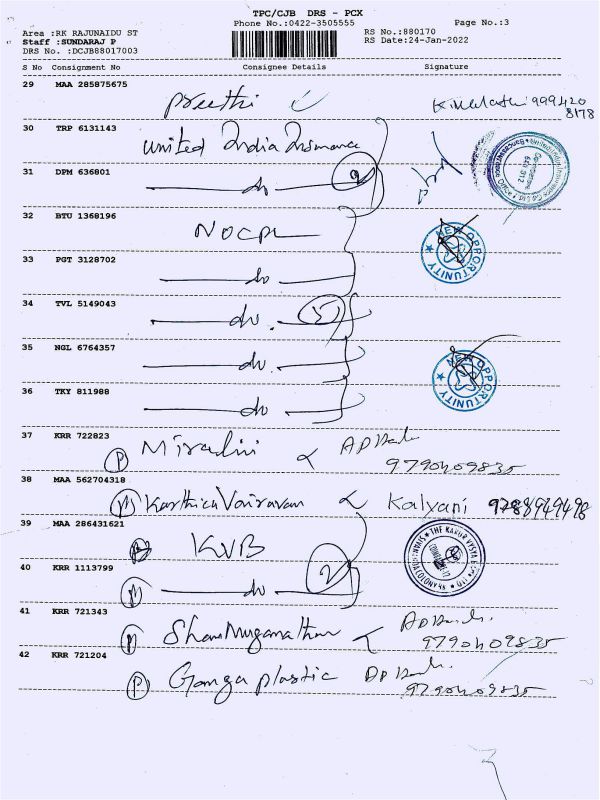 TPC/CJB DRS - PCX
Phone No.:0422-3505555
Page No.:3
Area :RK RAJUNAIDU ST
Staff :SUNDARAJ P
DRS No. :DCJB88017003
RS No.:880170
RS Date:24-Jan-2022
S No Consignment No Consignee Details Signature
29 MAA 285875675
Preethi
30 TRP 6131143
United India Insurance
31 DPM 636801
do
32 BTU 1368196
NOCPL
NEW OPPORTUNITY
33 PGT 3128702
do
34 TVL 5149043
do 5
35 NGL 6764357
do
NEW OPPORTUNITY
36 TKY 811988
do
37 KRR 722823
P
9790409835
38 MAA 562704318
Karthica Vairavan Kalyani 9788949498
39 MAA 286431621
KVB
40 KRR 1113799
do 2
41 KRR 721343
Shanmuganathan
9790409835
42 KRR 721204
P Ganga plastic
9790409835